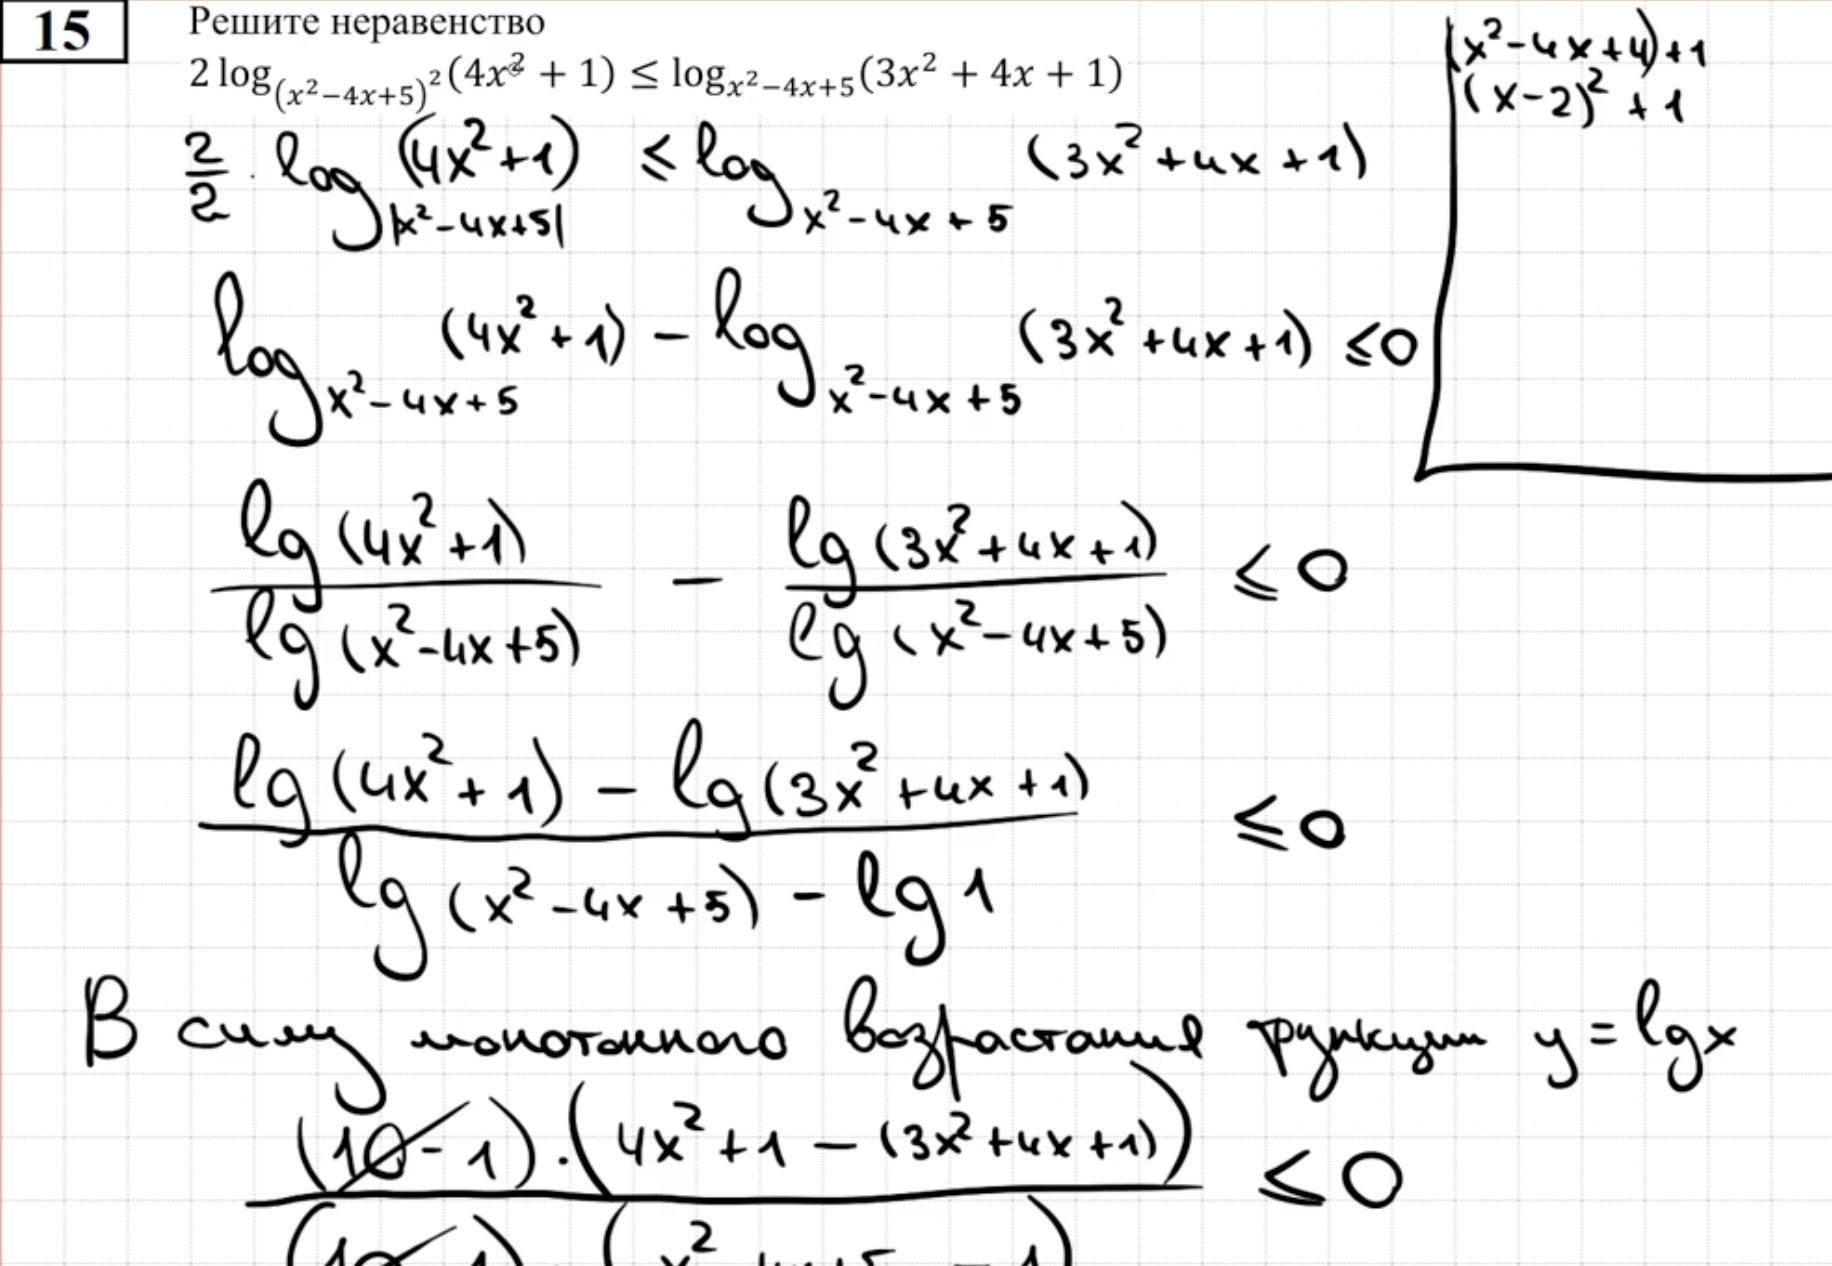 15
Решите неравенство
2 log_{(x²−4x+5)²}(4x² + 1) ≤ log_{x²−4x+5}(3x² + 4x + 1)
(x²-4x+4)+1
(x-2)² + 1
2/2 · log_{|x²-4x+5|} (4x²+1) ≤ log_{x²-4x+5} (3x²+4x+1)
log_{x²-4x+5} (4x²+1) - log_{x²-4x+5} (3x²+4x+1) ≤0
lg (4x²+1) / lg (x²-4x+5) - lg (3x²+4x+1) / lg (x²-4x+5) ≤ 0
(lg (4x²+1) - lg (3x²+4x+1)) / (lg (x²-4x+5) - lg 1) ≤0
В силу монотонного возрастания функции y = lgx
(10-1)·(4x²+1-(3x²+4x+1)) ≤0